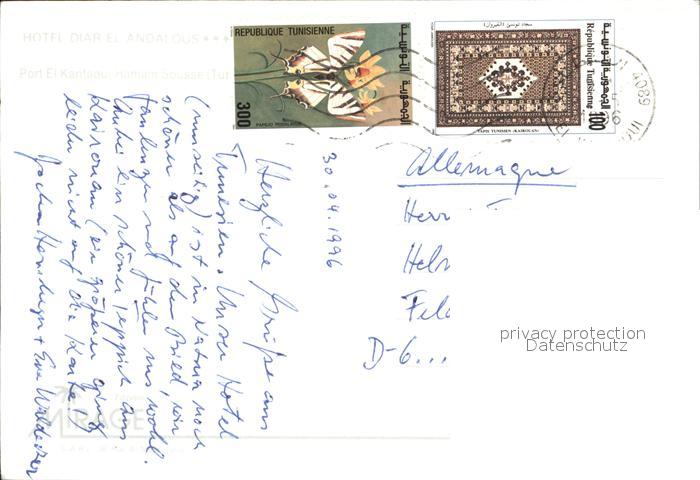 HOTEL DIAR EL ANDALOUS ★★★
Port El Kantaoui Hamam Sousse (Tun
REPUBLIQUE TUNISIENNE
300
الجمهورية التونسية
سجاد تونسي (القيروان)
الجمهورية التونسية
République Tunisienne
100
TAPIS TUNISIEN (KAIROUAN)
4089
30.04.1996
Herzliche Grüße aus
Tunesien. Unser Hotel
(umseitig) ist in Natura noch
schöner als auf dem Bild, wir
und fühlen uns wohl.
Anbei ein schöner Teppich aus
Kairouan (ein größerer ging
leider nicht auf die Karte!)
Allemagne
Herr
Hel
Fel
D-6...
privacy protection
Datenschutz
MIRAGE